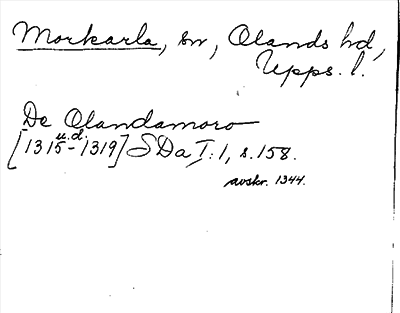 Morkarla, sn, Olands hd,
Upps. l.
De Olandamoro
u.d.
[1315-1319] SDa I:1, s. 158.
avskr. 1344.